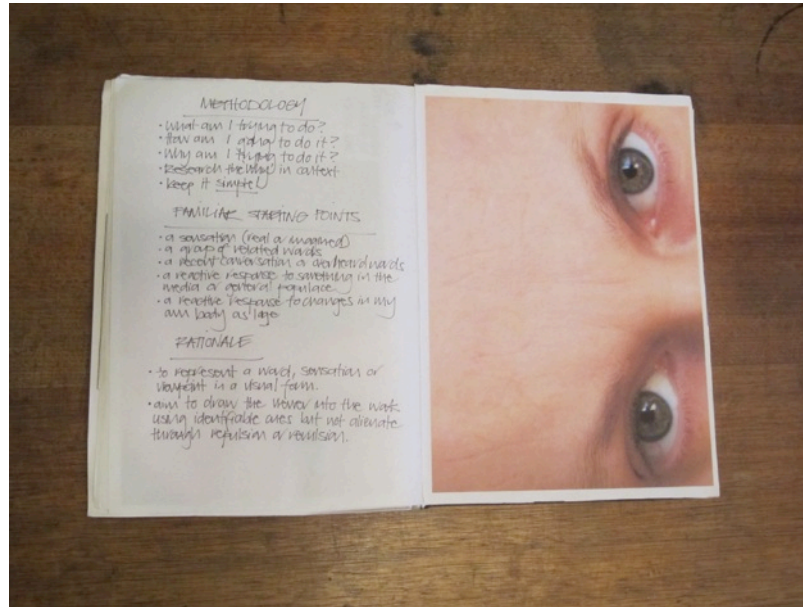 METHODOLOGY
• What am I trying to do?
• How am I going to do it?
• Why am I trying to do it?
• Research the 'Why' in context
• keep it simple!
FAMILIAR STARTING POINTS
• a sensation (real or imagined)
• a group of related words
• a recent conversation or overheard words
• a reactive response to something in the
media or general populace
• a reactive response to changes in my
own body as I age
RATIONALE
• to represent a word, sensation or
viewpoint in a visual form.
• aim to draw the viewer into the work
using identifiable cues but not alienate
through repulsion or revulsion.